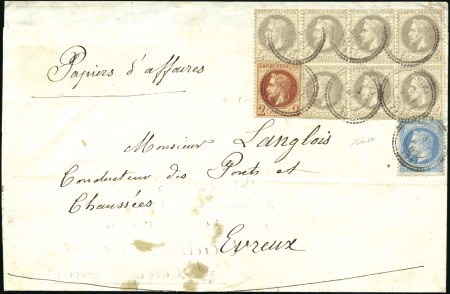 Papiers d'affaires
Monsieur Langlois
Conducteur des Ponts et
Chaussées
Evreux